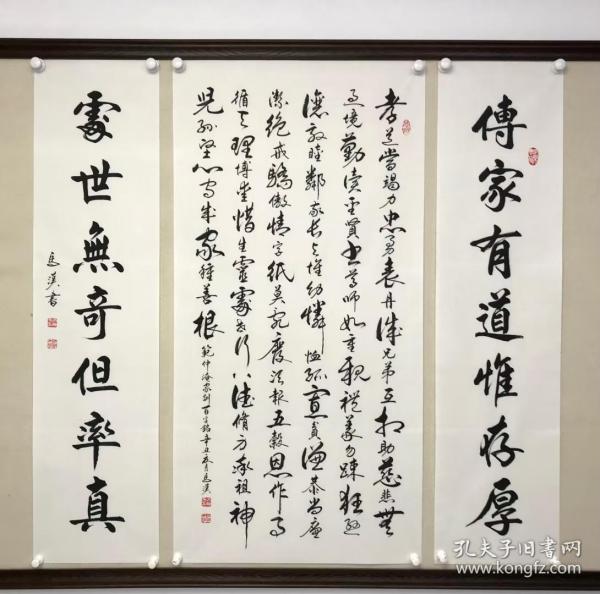 傳家有道惟存厚
孝道當竭力忠勇表丹誠兄弟互相助慈悲無
過境勤讀聖賢書尊師如重親禮義勿疎狂遜
讓敦睦鄰敬長與懷幼憐恤孤寡貧謙恭尚廉
潔絕戒驕傲情字紙莫亂廢須報五穀恩作事
循天理博愛惜生靈處世行八德脩身率祖神
兒孫堅心守成家種善根
範仲淹家訓百字銘辛丑秋月馬漢
處世無奇但率真
馬漢書
孔夫子旧书网
www.kongfz.com